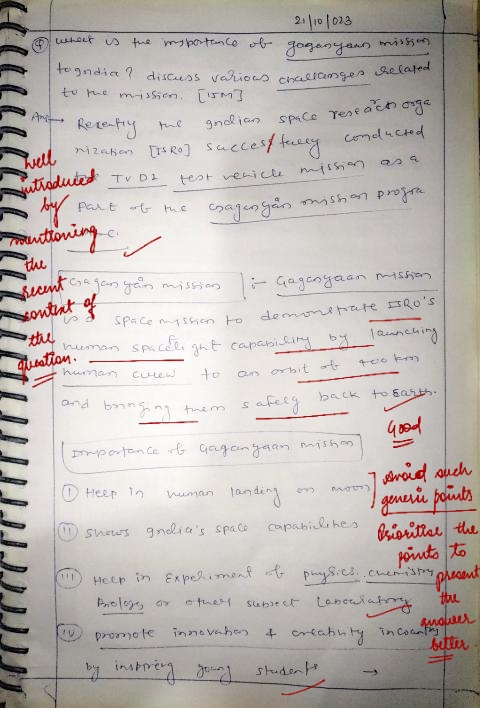 21/10/023
Q what is the importance of gaganyaan mission
to India? discuss various challanges related
to the mission. [15M]
Ans → Recently the Indian space research orga
nization [ISRO] successfully conducted
TV D1 test vehicle mission as a
part of the Gaganyan mission progra
Well
introduced
by
mentioning
the
recent
context of
the
question.
Gaganyan mission :- Gaganyaan mission
is a space mission to demonstrate ISRO's
human spaceflight capability by launching
human crew to an orbit of 400 km
and bringing them safely back to Earth.
Good
Importance of Gaganyaan Mission
(I) Help in human landing on moon
Avoid such
generic points
(II) shows India's space capabilities
Prioritise the
points to
present
the
answer
better.
(III) Help in Experiment of physics, chemistry
Biology or other subject Laboratory
(IV) promote innovation & creativity in country
by inspiring young students →